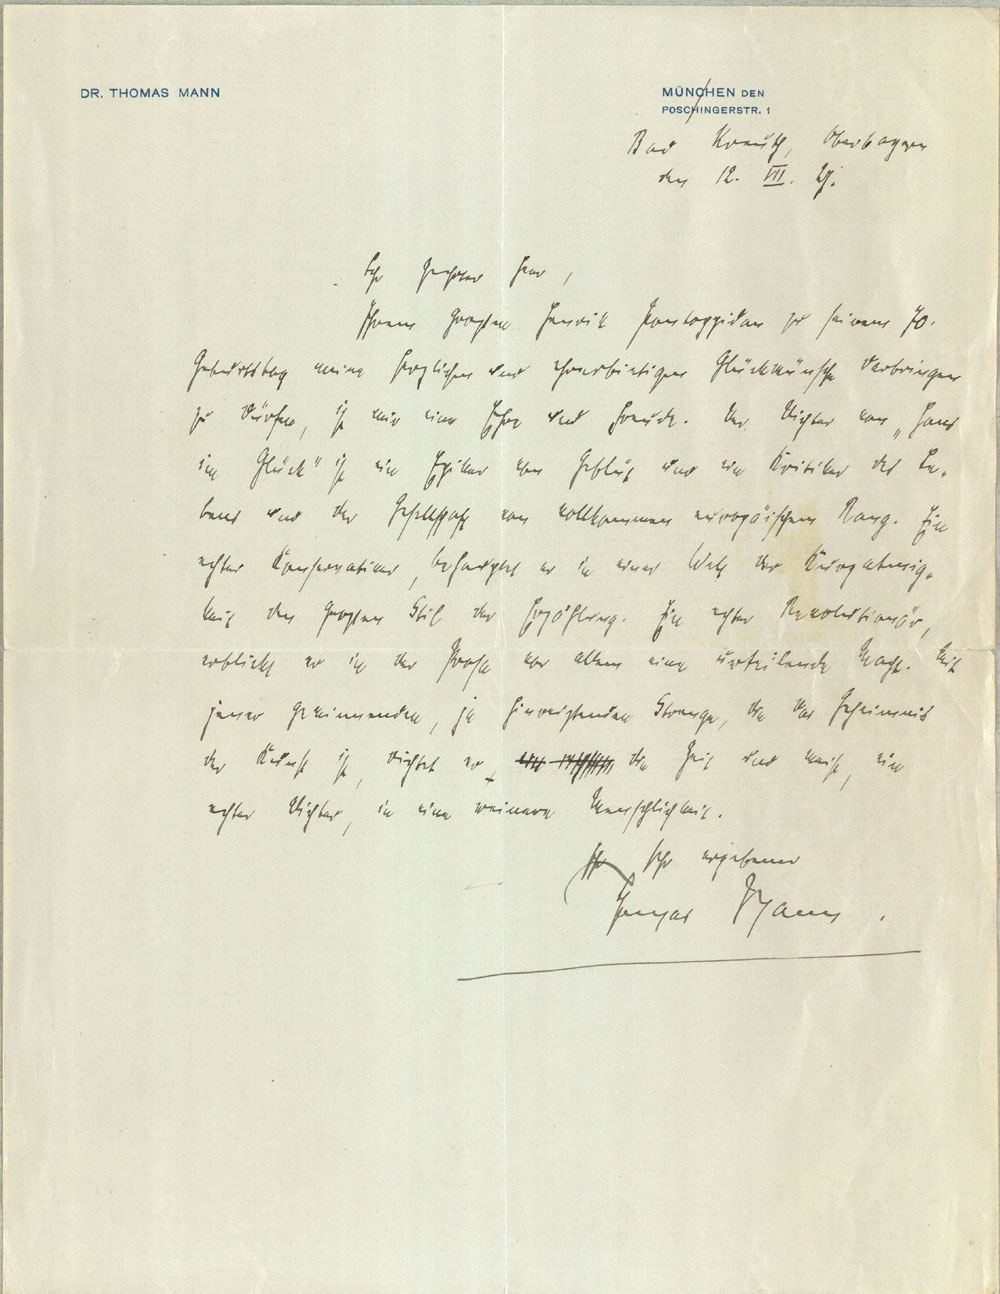 DR. THOMAS MANN
MÜNCHEN DEN
POSCHINGERSTR. 1
Bad Kreuth, Oberbayern
den 12. VII. 27.
Sehr geehrter Herr,
Ihrem grossen Henrik Pontoppidan zu seinem 70.
Geburtstag meine herzlichen und ehrerbietigen Glückwünsche darbringen
zu dürfen, ist mir eine Ehre und Freude. Der Dichter von „Hans
im Glück" ist ein Epiker von Geblüt und ein Kritiker des Le-
bens und der Gesellschaft von vollkommen europäischem Rang. Ein
echter Konservativer, behauptet er in einer Welt der Kurzatmig-
keit den grossen Stil der Erzählung. Ein echter Revolutionär,
erblickt er in der Prosa vor allem eine urteilende Macht. Mit
jener gewinnenden, ja hinreissenden Strenge, die das Geheimnis
der Kunst ist, richtet er die Zeit und weist, ein
echter Dichter, in eine reinere Menschlichkeit.
Ihr sehr ergebener
Thomas Mann.